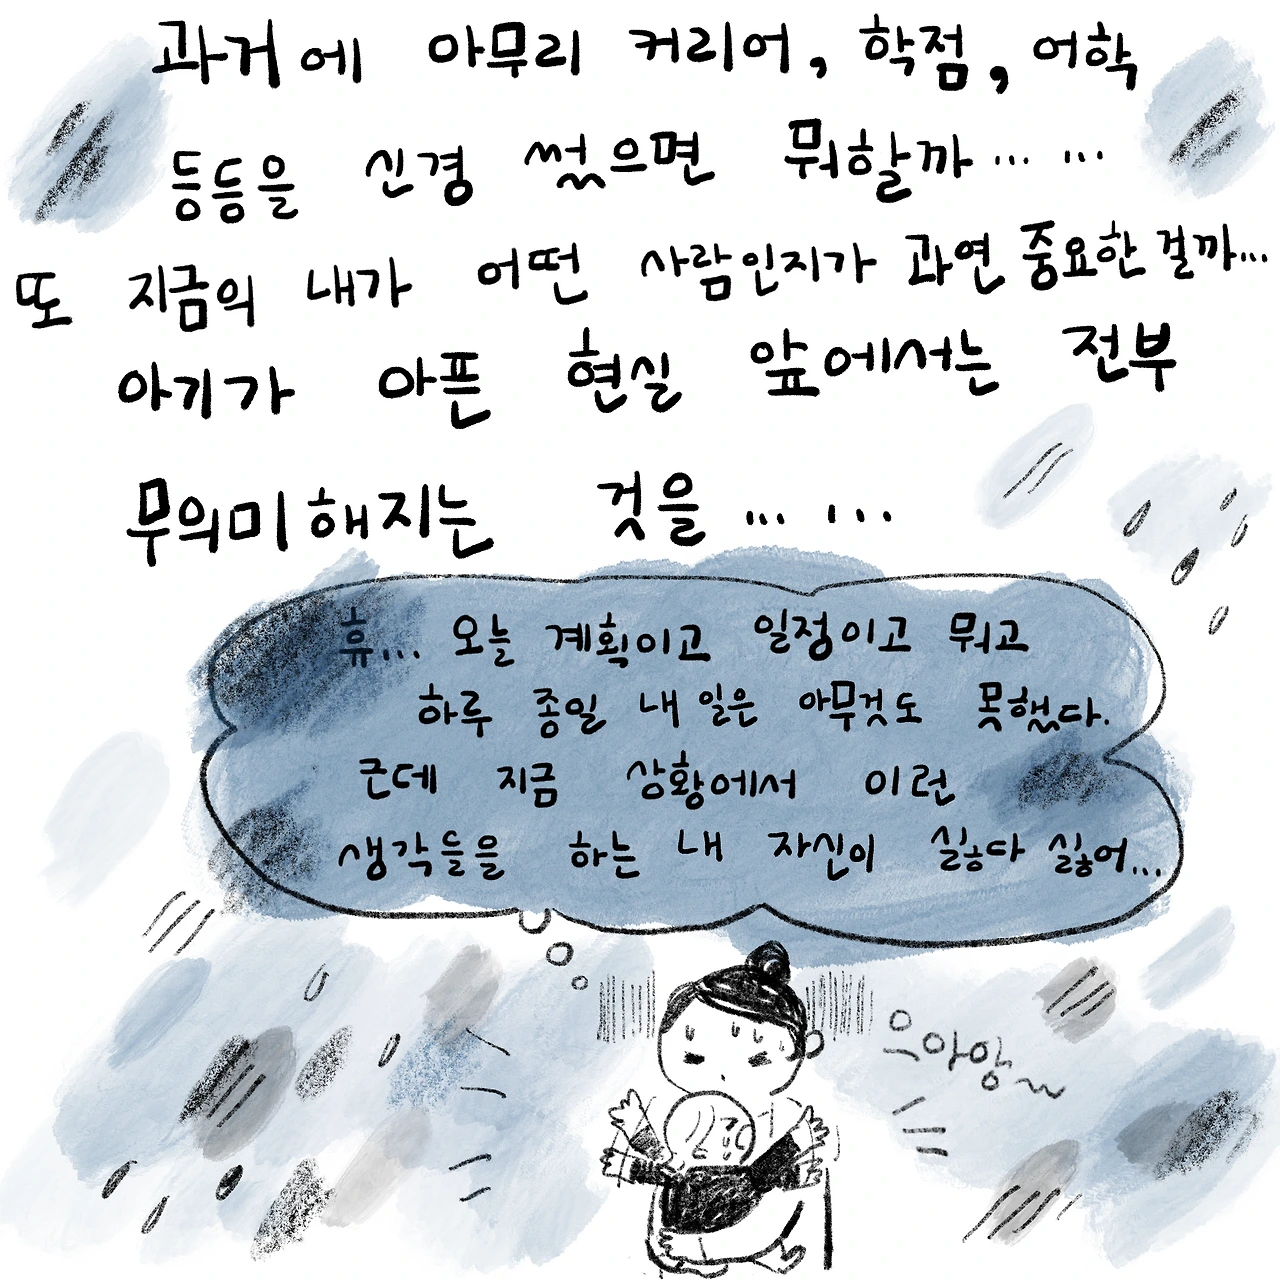 과거에 아무리 커리어, 학점, 어학
등등을 신경 썼으면 뭐할까... ...
또 지금의 내가 어떤 사람인지가 과연 중요한 걸까...
아기가 아픈 현실 앞에서는 전부
무의미해지는 것을... ...
휴... 오늘 계획이고 일정이고 뭐고
하루 종일 내 일은 아무것도 못했다.
근데 지금 상황에서 이런
생각들을 하는 내 자신이 싫다 싫어...
으아앙~